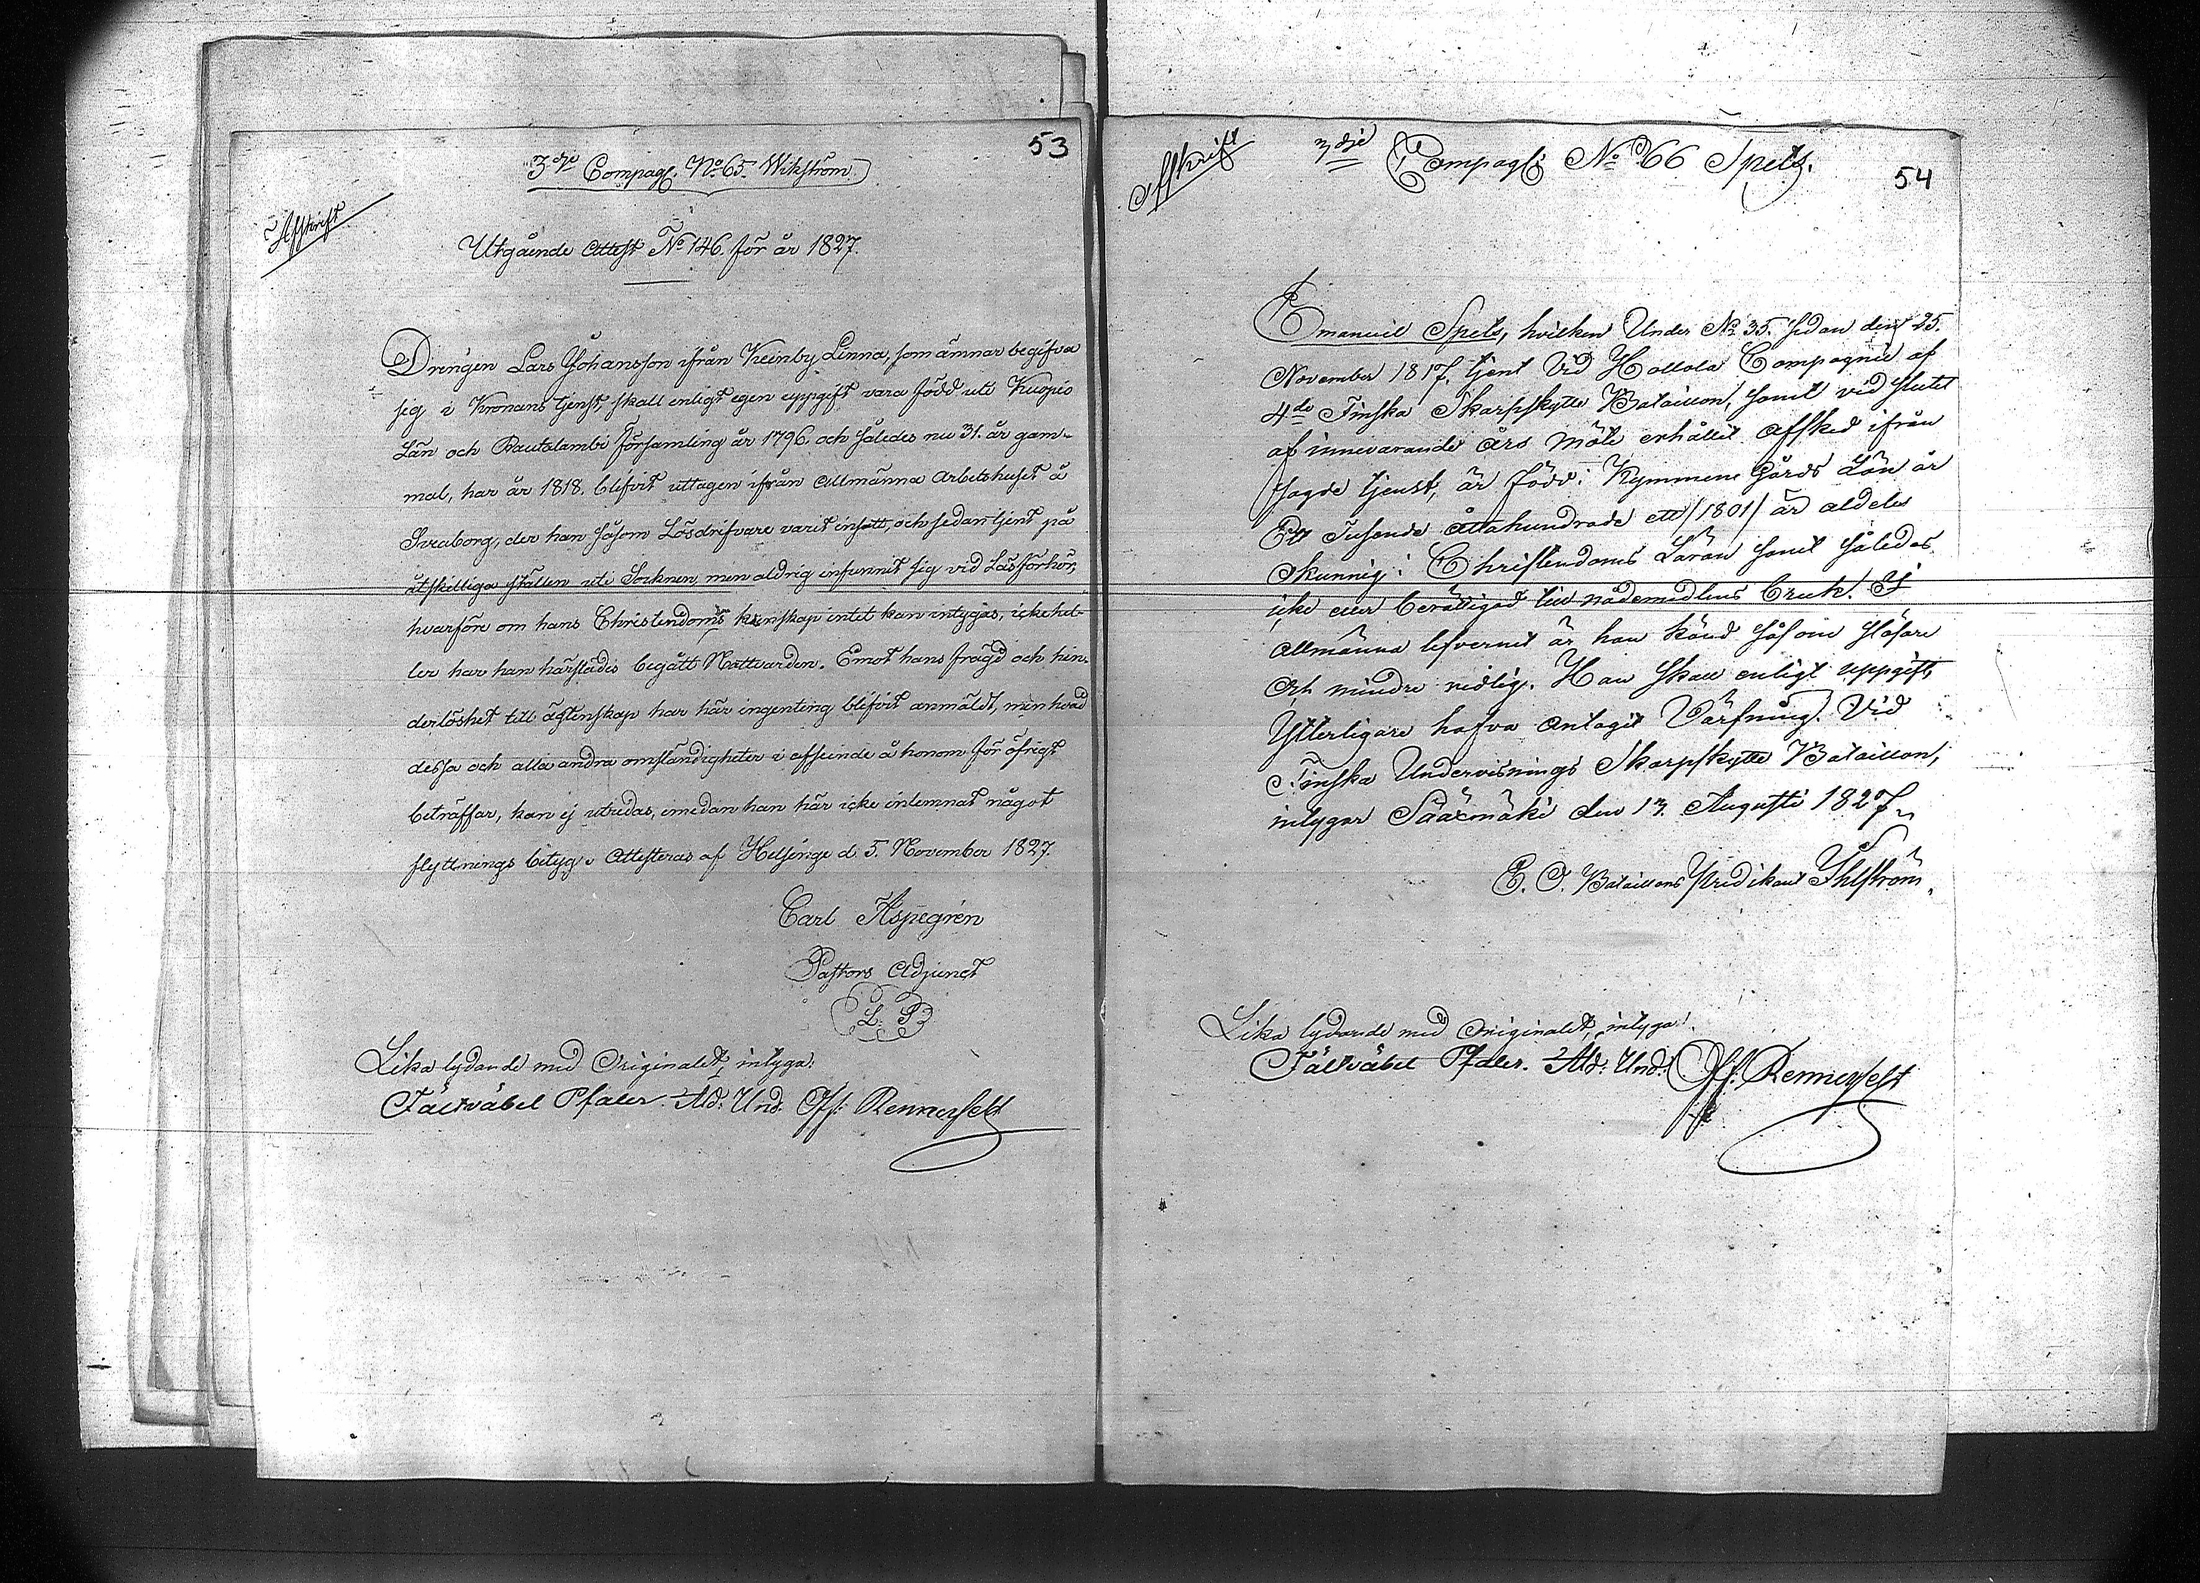 53
3dje Compagt. No 65. Wikström
Afskrift
Utgående Attest No 146. för år 1827.
Drengen Lars Johansson ifrån Keinby Linna, som ämnar begifva
sig i Kronans tjenst, skall enligt egen uppgift vara född uti Kuopio
Län och Rautalambi församling år 1796. och således nu 31. år gam-
mal, har år 1818. blifvit uttagen ifrån Allmänna Arbetshuset å
Sveaborg, der han såsom Lösdrifvare varit insatt, och sedan tjent på
åtskilliga ställen uti Socknen, men aldrig infunnit sig vid Läsförhör,
hvarföre om hans Christendoms kunskap intet kan intygas, icke hel-
ler har han härstädes begått Nattvarden. Emot hans frägd och hin-
derlöshet till ägtenskap har här ingenting blifvit anmäldt, men hvad
dessa och alla andra omständigheter i afseende å honom för öfrigt
beträffar, kan ej utredas, emedan han här icke inlemnat något
flyttnings betyg. Attesteras af Helsinge d. 5. November 1827.
Carl Aspegrén
Pastors Adjunct
L. P.
Lika lydande med Originalet, intyga:
Fältväbel Pfaler. Und. Off: Rennerfelt
54
Afskrift
3dje Compagt: No 66 Spets.
Emanuel Spets, hvilken Under No 35. sedan den 25.
November 1817. tjent Vid Hollola Compagnie af
4de Finska Skarpskytte Bataillon, samt vid slutet
af innevarande års möte erhållit afsked ifrån
sagde tjenst, är född i Kymmene Gårds Län år
Ett Tusende åttahundrade ett /1801/ är aldeles
okunnig i Christendoms Läran samt således
icke eller berättigad till nådemedlens bruk. I
allmänna lefvernet är han känd såsom slösare
och mindre redlig. Han skall enligt uppgift,
Ytterligare hafva antagit Värfning Vid
Finska Undervisnings Skarpskytte Bataillon,
intygar Sääxmäki den 13. Augusti 1827.
E. O. Bataillons Predikant Ihlström.
Lika lydande med Originalet, intyga:
Fältväbel Pfaler. Und: Off: Rennerfelt